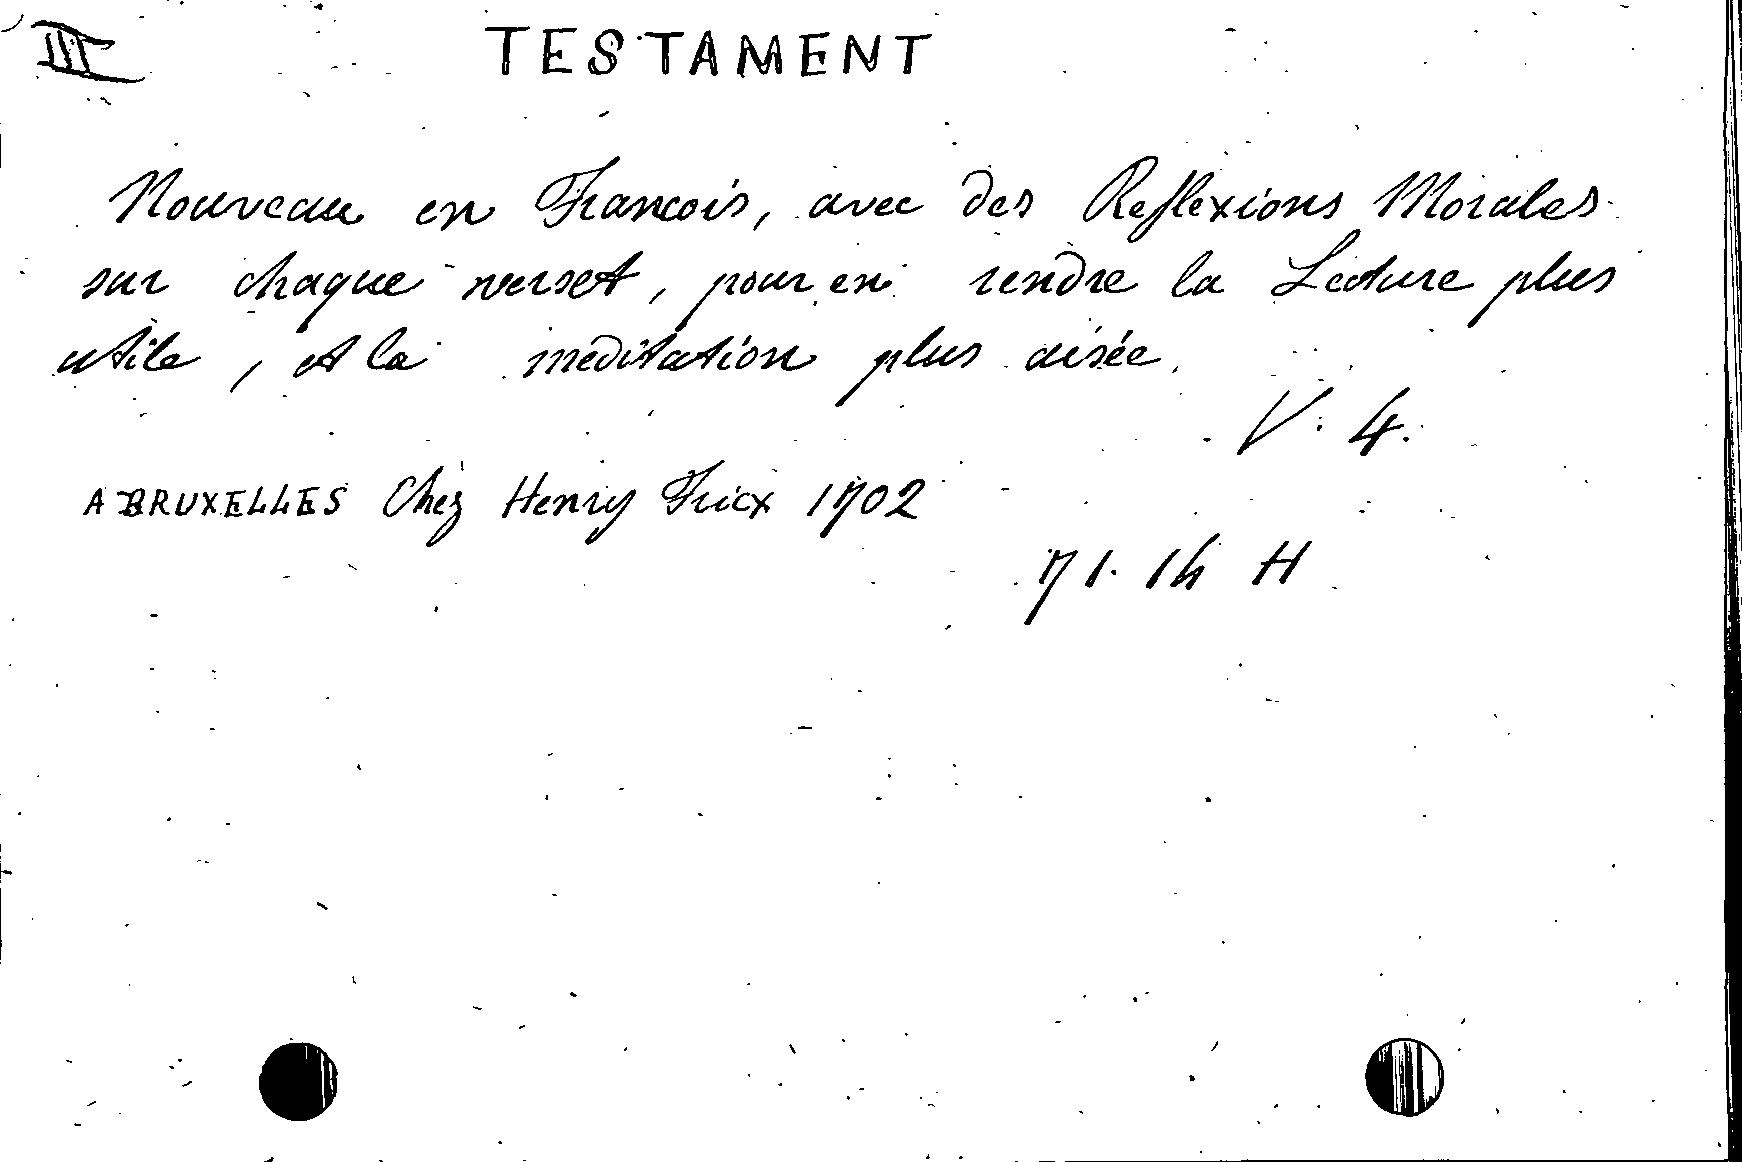 III TESTAMENT
Nouveau en Francois, avec des Reflexions Morales
sur chaque verset, pour en rendre la Lecture plus
utile, et la meditation plus aisée.
V. 4.
A BRUXELLES Chez Henry Fricx 1702
71. 14 H